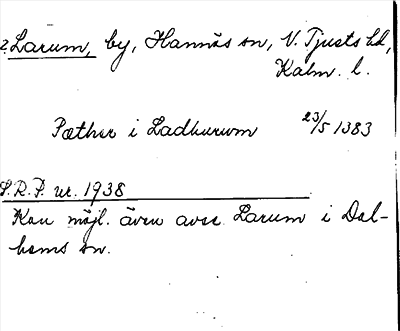 ? Larum, by, Hannäs sn, N. Tjusts hd,
Kalm. l.
Pæther i Ladhurum 23/5 1383
S.R.P. nr. 1938
Kan möjl. även avse Larum i Dal-
hems sn.